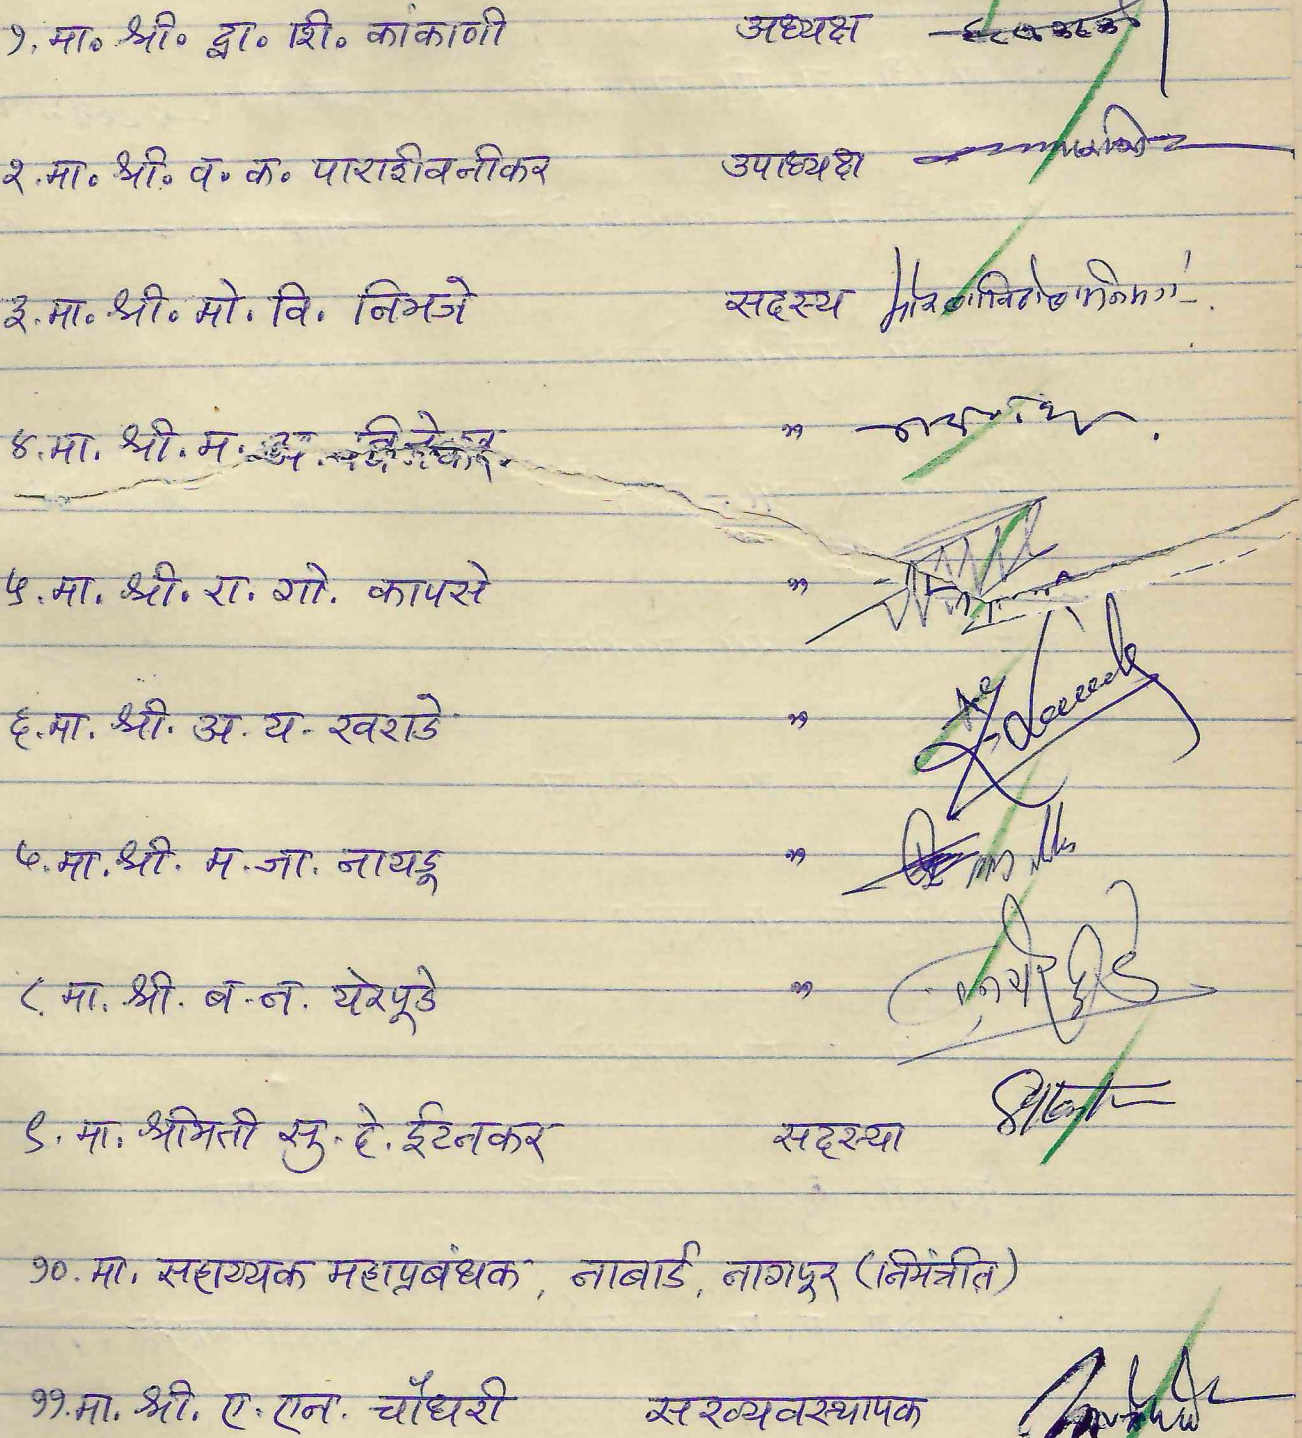 १. मा. श्री. द्वा. शि. कांकाणी अध्यक्ष
२. मा. श्री. व. क. पाराशीवनीकर उपाध्यक्ष
३. मा. श्री. मो. वि. निमजे सदस्य
४. मा. श्री. म. अ. "
५. मा. श्री. रा. गो. कापसे "
६. मा. श्री. अ. य. खराडे "
७. मा. श्री. म. जा. नायडू "
८. मा. श्री. ब. न. येरपूडे "
९. मा. श्रीमती सु. दे. ईटनकर सदस्या
१०. मा. सहाय्यक महाप्रबंधक, नाबार्ड, नागपूर (निमंत्रीत)
११. मा. श्री. ए. एन. चौधरी सरव्यवस्थापक